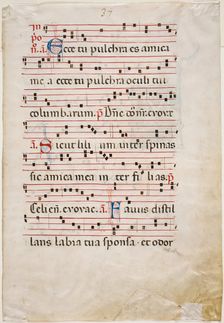 37
In
po
nã. a. Ecce tu pulchra es amica
me a ecce tu pulchra oculi tui
columbarum. p Dñe
Sicut lili um inter spinas
sic amica mea in ter fi lias. p
Celi a. Favus distil
lans labia tua sponsa. et odor